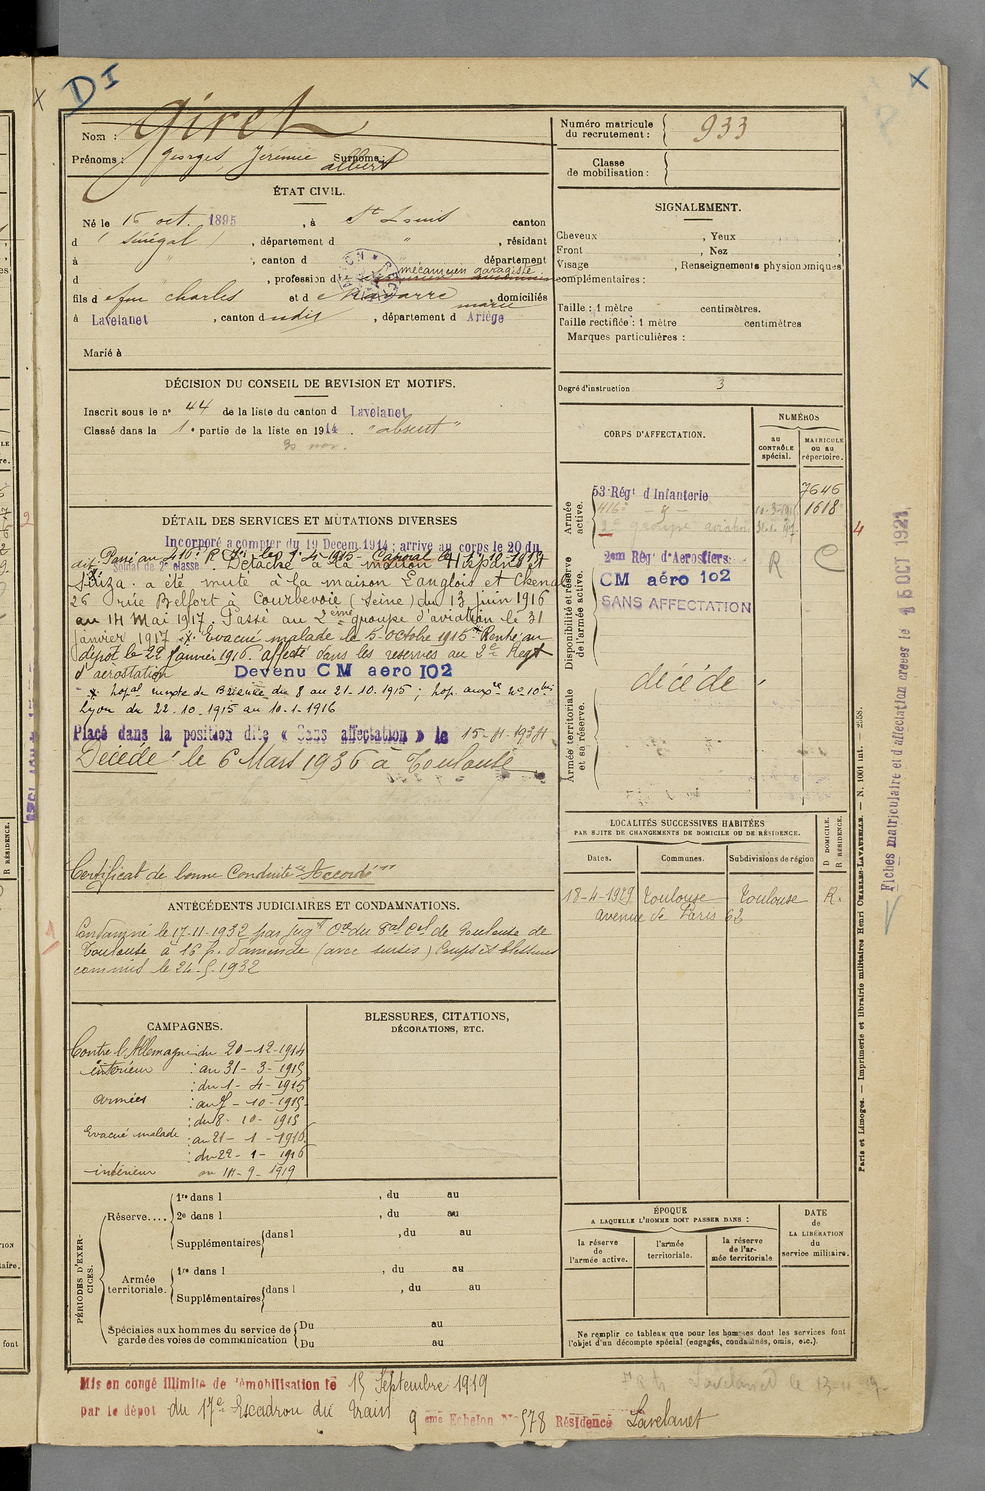 D I
X
Nom : Giret
Prénoms : Georges, Jérémie Surnoms : Albert
ÉTAT CIVIL.
Né le 16 oct. 1895, à St Louis canton
d " Sénégal, département d ", résidant
à ", canton d , département
d , profession d mécanicien garagiste
fils d feu Charles et d Navarre Marie, domiciliés
à Lavelanet, canton dudit, département d Ariège
Marié à
DÉCISION DU CONSEIL DE REVISION ET MOTIFS.
Inscrit sous le n° 44 de la liste du canton d Lavelanet
Classé dans la 1e partie de la liste en 1914. "absent"
DÉTAIL DES SERVICES ET MUTATIONS DIVERSES
Incorporé a compter du 19 Decem 1914; arrive au corps le 20 du
dit. Soldat de 2e classe. Passé au 416e R. d'Ie le 1-4-1915 - Caporal le 1-10-1917
Détaché à la maison Hispano et
Suiza. a été muté à la maison Langlois et Chenal
26 rue Belfort à Courbevoie (Seine) du 13 Juin 1916
au 14 Mai 1917. Passé au 2ème groupe d'aviation le 31
janvier 1917 x Evacué malade le 5 octobre 1915 x Rentré au
dépôt le 22 Janvier 1916 affecté dans les réserves au 2e Regt
d'aerostation Devenu CM aero 102
x hopal mixte de Brienne du 8 au 21.10.1915; hop. auxre n° 10 bis
Lyon du 22.10.1915 au 10.1.1916
Placé dans la position dite « Sans affectation » le 15-11-1934
Décédé le 6 Mars 1936 à Toulouse
Certificat de bonne Conduite "Accordé"
ANTÉCÉDENTS JUDICIAIRES ET CONDAMNATIONS.
Condamné le 17.11.1932 par jugt Cre du Bal Cel de Toulouse de
Toulouse à 16 fr. d'amende (avec sursis) Coups et blessures
commis le 24.5.1932
CAMPAGNES.
Contre l'Allemagne du 20-12-1914
intérieur : au 31-3-1915
: du 1-4-1915
armées : au 7-10-1915
: du 8-10-1915
Evacué malade : au 21-1-1916
: du 22-1-1916
intérieur au 14-9-1919
BLESSURES, CITATIONS,
DÉCORATIONS, ETC.
PÉRIODES D'EXERCICES.
Réserve.... 1re dans l , du au
2e dans l , du au
Supplémentaires dans l , du au
Armée territoriale. 1re dans l , du au
Supplémentaires dans l , du au
Spéciales aux hommes du service de garde des voies de communication
Du au
Du au
Numéro matricule du recrutement : 933
Classe de mobilisation :
SIGNALEMENT.
Cheveux , Yeux
Front , Nez
Visage , Renseignements physionomiques
complémentaires :
Taille : 1 mètre centimètres.
Taille rectifiée : 1 mètre centimètres
Marques particulières :
Degré d'instruction 3
CORPS D'AFFECTATION.
NUMÉROS
au CONTRÔLE spécial.
MATRICULE ou au répertoire.
Armée active.
53e Régt d'Infanterie 7646
416e - d° - 1618
2e groupe aviation
Disponibilité et réserve de l'armée active.
2em Rég' d'Aerostiers R C
CM aéro 102
SANS AFFECTATION
Armée territoriale et sa réserve.
décédé
LOCALITÉS SUCCESSIVES HABITÉES
PAR SUITE DE CHANGEMENTS DE DOMICILE OU DE RÉSIDENCE.
D DOMICILE. R RÉSIDENCE.
Dates. Communes. Subdivisions de région
18-4-1929 Toulouse Toulouse R.
avenue de Paris 62
ÉPOQUE
A LAQUELLE L'HOMME DOIT PASSER DANS :
la réserve de l'armée active.
l'armée territoriale.
la réserve de l'armée territoriale
DATE de LA LIBÉRATION du service militaire.
Ne remplir ce tableau que pour les hommes dont les services font
l'objet d'un décompte spécial (engagés, condamnés, omis, etc.).
Mis en congé illimité de démobilisation le 15 Septembre 1919
par le dépot du 17e Escadron du train
9eme Echelon N° 578 Résidence Lavelanet
Paris et Limoges. — Imprimerie et librairie militaires Henri CHARLES-LAVAUZELLE. — N. 1001 int. — 2558.
Fiches matriculaire et d'affectation créées le 15 OCT 1921